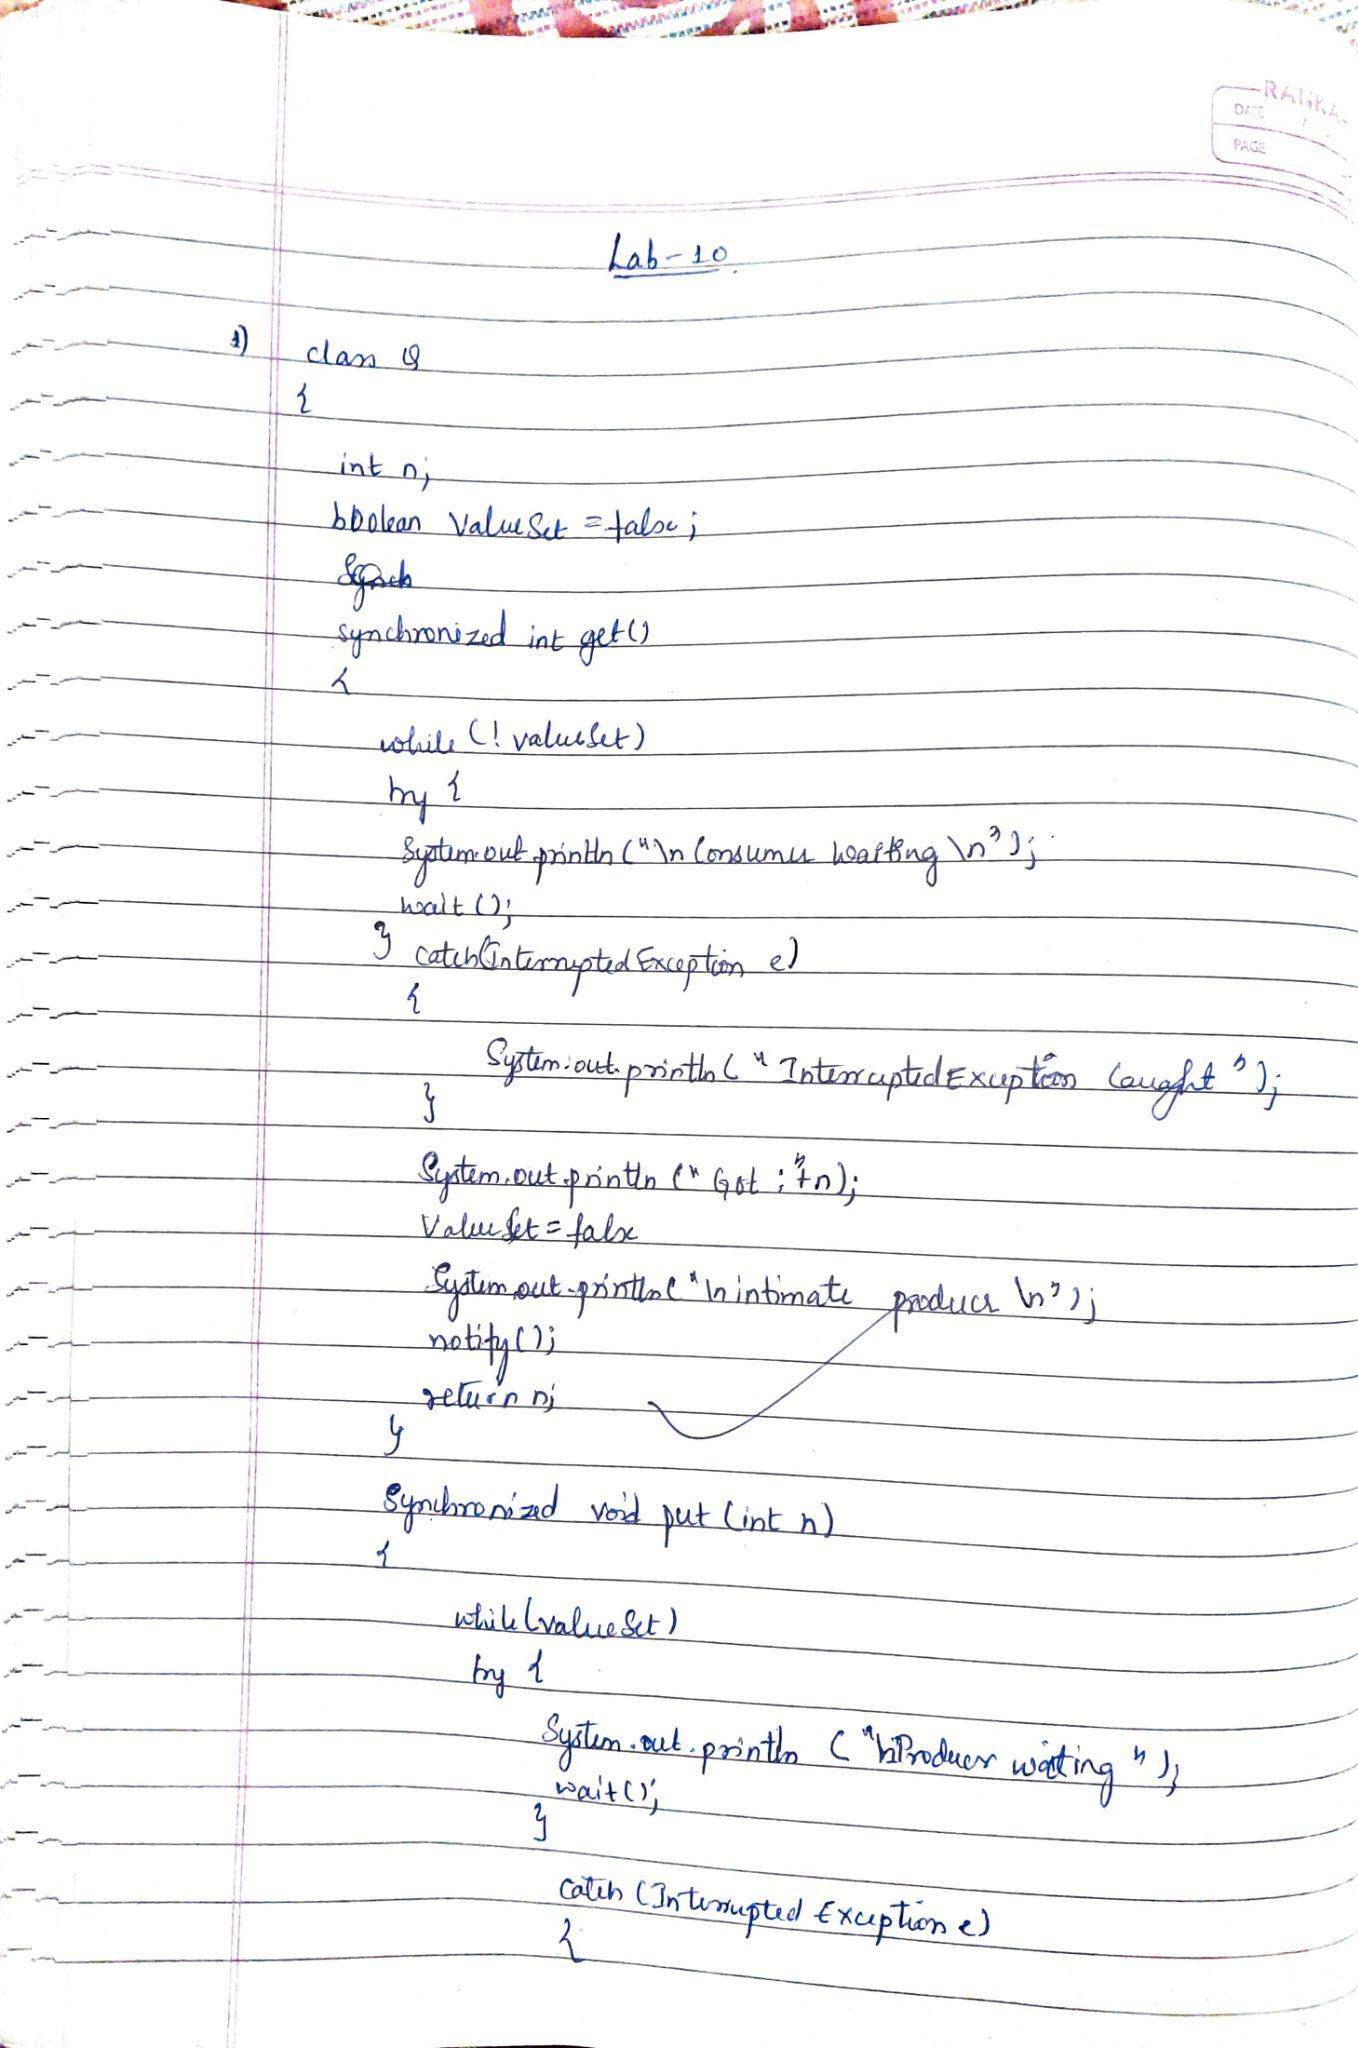 RANKA
DATE /
PAGE
Lab-10
1) class Q
{
int n;
boolean valueSet = false;
synchronized int get()
{
while (! valueSet)
try {
System.out.println ("\n Consumer waiting \n");
wait ();
} catch(InterruptedException e)
{
System.out.println ("InterruptedException caught");
}
System.out.println ("Got : "+n);
valueSet = false
System.out.println ("\n intimate producer \n");
notify();
return n;
}
Synchronized void put (int n)
{
while (valueSet)
try {
System.out.println ("\n Producer waiting");
wait();
}
catch (InterruptedException e)
{